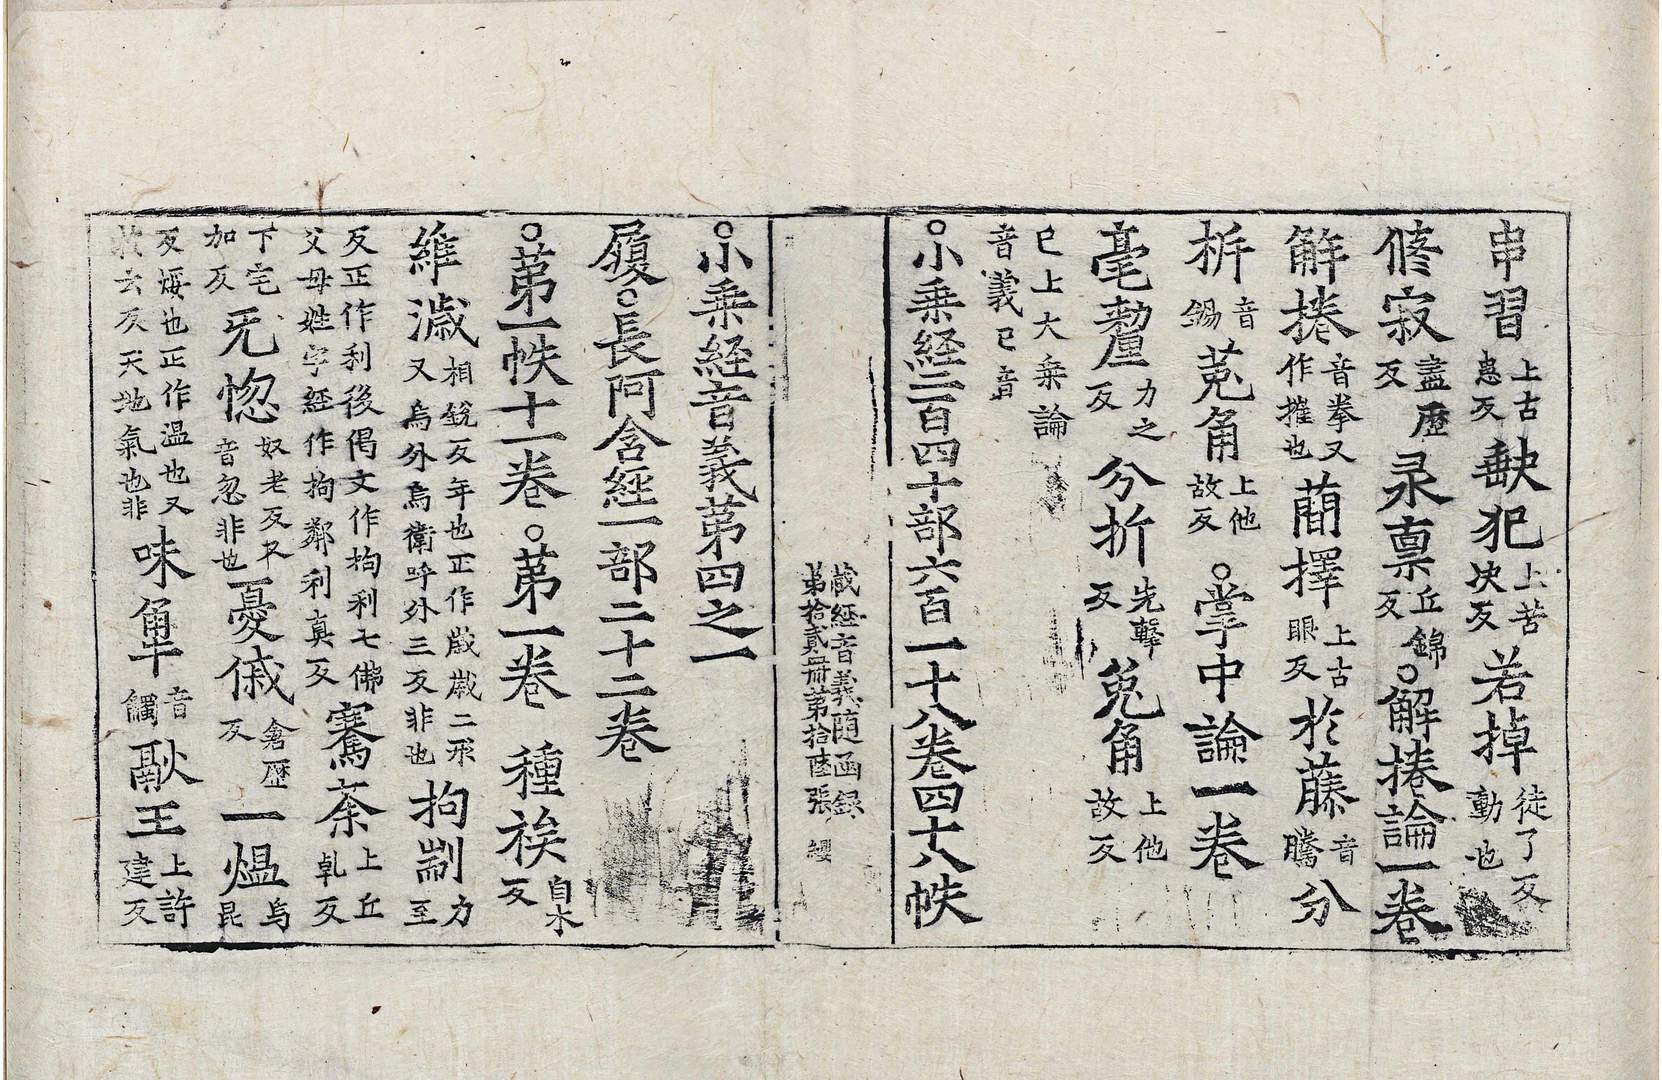 串習上古患反𡙇犯上苦决反若掉徒了反動也
倄寂盡歷反录禀丘錦反○解捲論一卷
解捲音拳又作摧也蕳擇上古眼反於藤音騰分
析音錫菟角上他故反○掌中論一卷
毫𣯛力之反分折先擊反兔角上他故反
已上大乗論音義已音
○小乗経二百四十部六百一十八卷四十八帙
藏経音義随函録第拾貳冊第拾陸張 纓
○小乗経音義第四之一
履○長阿含經一部二十二卷
○第一帙十一卷○第一卷 種袟自木反
維濊相銳反年也正作歲歳二形又烏外烏衛呼外三反非也拘𠞰力至
反正作利後偈文作拘利七佛父母姓字經作拘鄰利真反騫荼上丘乹反
下宅加反旡惚奴老反又音忽非也憂慼倉歷反一熅烏昆
反煖也正作温也又於云反天地氣也非味𧢲音觸㪉王上許建反